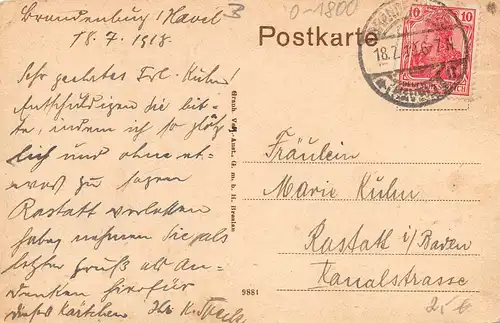 Brandenburg/Havel
18.7.1918.
3
0-1800
Postkarte
10 10
18.7. 6-7.N.
(HAVEL)
Sehr geehrtes Frl. Kuhn!
Entschuldigen sie bit-
te, indem ich so plötz
lich und ohne et-
was zu sagen
Rastatt verlassen
habe, nehmen Sie als
letzter Gruß als An-
denken hierfür
dieses Kärtchen Ihr K.
Graph. Verl.-Anst. G. m. b. H. Breslau
9881
Fräulein
Marie Kuhn
Rastatt i/Baden
Kanalstrasse
25€